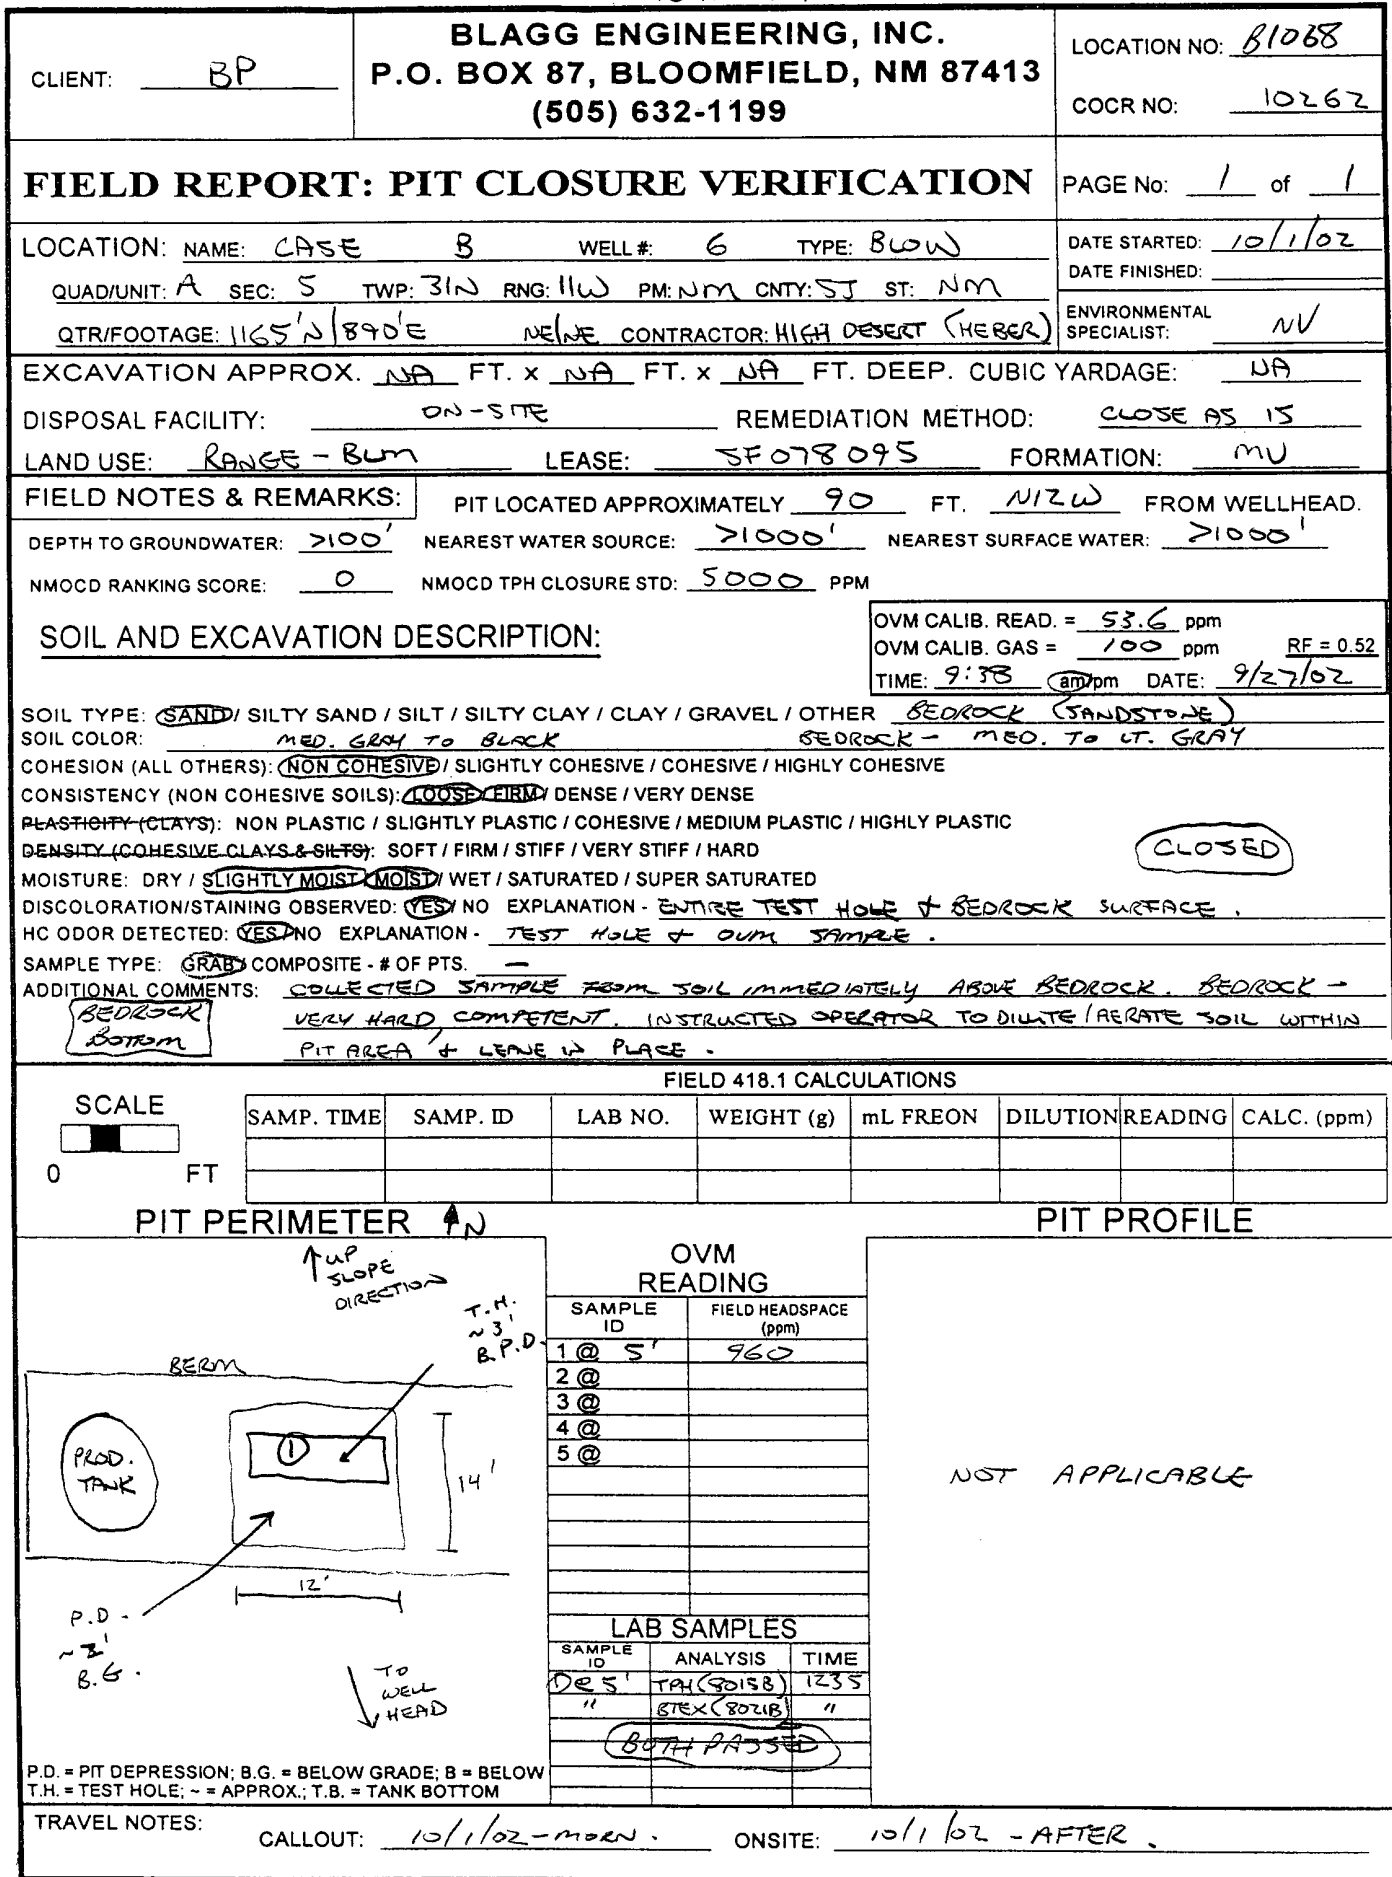 BLAGG ENGINEERING, INC.
P.O. BOX 87, BLOOMFIELD, NM 87413
(505) 632-1199
CLIENT: BP
LOCATION NO: B1068
COCR NO: 10262
FIELD REPORT: PIT CLOSURE VERIFICATION
PAGE No: 1 of 1
LOCATION: NAME: CASE B WELL #: 6 TYPE: BLOW
QUAD/UNIT: A SEC: 5 TWP: 31N RNG: 11W PM: NM CNTY: SJ ST: NM
QTR/FOOTAGE: 1165'N/890'E NE/NE CONTRACTOR: HIGH DESERT (HEBER)
DATE STARTED: 10/1/02
DATE FINISHED:
ENVIRONMENTAL
SPECIALIST: NV
EXCAVATION APPROX. NA FT. x NA FT. x NA FT. DEEP. CUBIC YARDAGE: NA
DISPOSAL FACILITY: ON-SITE REMEDIATION METHOD: CLOSE AS IS
LAND USE: RANGE - BLM LEASE: SF078095 FORMATION: MV
FIELD NOTES & REMARKS: PIT LOCATED APPROXIMATELY 90 FT. N12W FROM WELLHEAD.
DEPTH TO GROUNDWATER: >100' NEAREST WATER SOURCE: >1000' NEAREST SURFACE WATER: >1000'
NMOCD RANKING SCORE: 0 NMOCD TPH CLOSURE STD: 5000 PPM
SOIL AND EXCAVATION DESCRIPTION:
OVM CALIB. READ. = 53.6 ppm
OVM CALIB. GAS = 100 ppm RF = 0.52
TIME: 9:38 am/pm DATE: 9/27/02
SOIL TYPE: SAND / SILTY SAND / SILT / SILTY CLAY / CLAY / GRAVEL / OTHER BEDROCK (SANDSTONE)
SOIL COLOR: MED. GRAY TO BLACK BEDROCK - MED. TO LT. GRAY
COHESION (ALL OTHERS): NON COHESIVE / SLIGHTLY COHESIVE / COHESIVE / HIGHLY COHESIVE
CONSISTENCY (NON COHESIVE SOILS): LOOSE / FIRM / DENSE / VERY DENSE
PLASTICITY (CLAYS): NON PLASTIC / SLIGHTLY PLASTIC / COHESIVE / MEDIUM PLASTIC / HIGHLY PLASTIC
DENSITY (COHESIVE CLAYS & SILTS): SOFT / FIRM / STIFF / VERY STIFF / HARD
CLOSED
MOISTURE: DRY / SLIGHTLY MOIST / MOIST / WET / SATURATED / SUPER SATURATED
DISCOLORATION/STAINING OBSERVED: YES / NO EXPLANATION - ENTIRE TEST HOLE & BEDROCK SURFACE.
HC ODOR DETECTED: YES / NO EXPLANATION - TEST HOLE & OVM SAMPLE.
SAMPLE TYPE: GRAB / COMPOSITE - # OF PTS. —
ADDITIONAL COMMENTS: COLLECTED SAMPLE FROM SOIL IMMEDIATELY ABOVE BEDROCK. BEDROCK -
VERY HARD, COMPETENT. INSTRUCTED OPERATOR TO DILUTE / AERATE SOIL WITHIN
PIT AREA & LEAVE IN PLACE.
BEDROCK
BOTTOM
FIELD 418.1 CALCULATIONS
SCALE
0 FT
SAMP. TIME SAMP. ID LAB NO. WEIGHT (g) mL FREON DILUTION READING CALC. (ppm)
PIT PERIMETER N
PIT PROFILE
UP
SLOPE
DIRECTION
T.H.
~3'
B.P.D.
BERM
PROD.
TANK
1
14'
12'
P.D -
~2'
B.G.
TO
WELL
HEAD
OVM
READING
SAMPLE ID FIELD HEADSPACE (ppm)
1 @ 5' 960
2 @
3 @
4 @
5 @
NOT APPLICABLE
LAB SAMPLES
SAMPLE ID ANALYSIS TIME
①@5' TPH (8015B) 1235
" BTEX (8021B) "
BOTH PASSED
P.D. = PIT DEPRESSION; B.G. = BELOW GRADE; B = BELOW
T.H. = TEST HOLE; ~ = APPROX.; T.B. = TANK BOTTOM
TRAVEL NOTES:
CALLOUT: 10/1/02 - MORN. ONSITE: 10/1/02 - AFTER.